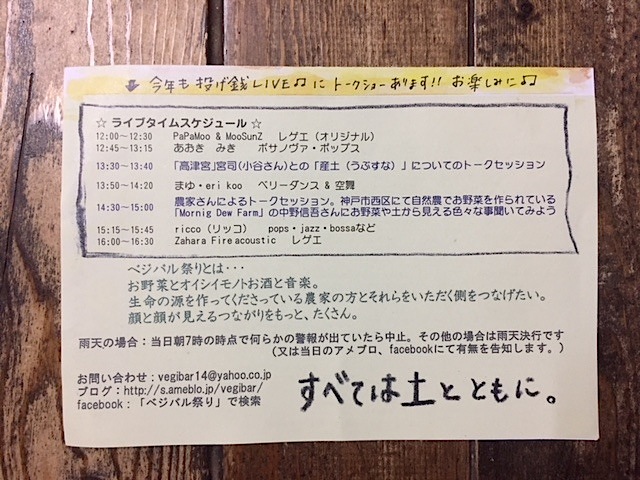 ↓ 今年も投げ銭LIVE♫にトークショーあります!! お楽しみに♫
☆ ライブタイムスケジュール ☆
12:00～12:30 PaPaMoo & MooSunZ レゲエ（オリジナル）
12:45～13:15 あおき みき ボサノヴァ・ポップス
13:30～13:40 「高津宮」宮司(小谷さん)との「産土（うぶすな）」についてのトークセッション
13:50～14:20 まゆ・eri koo ベリーダンス & 空舞
農家さんによるトークセッション。神戸市西区にて自然農でお野菜を作られている
14:30～15:00 「Mornig Dew Farm」の中野信吾さんにお野菜や土から見える色々な事聞いてみよう
15:15～15:45 ricco（リッコ） pops・jazz・bossaなど
16:00～16:30 Zahara Fire acoustic レゲエ
ベジバル祭りとは・・・
お野菜とオイシイモノトお酒と音楽。
生命の源を作ってくださっている農家の方とそれらをいただく側をつなげたい。
顔と顔が見えるつながりをもっと、たくさん。
雨天の場合：当日朝7時の時点で何らかの警報が出ていたら中止。その他の場合は雨天決行です
（又は当日のアメブロ、facebookにて有無を告知します。）
お問い合わせ：vegibar14@yahoo.co.jp
ブログ：http://s.ameblo.jp/vegibar/
facebook：「ベジバル祭り」で検索
すべては土とともに。